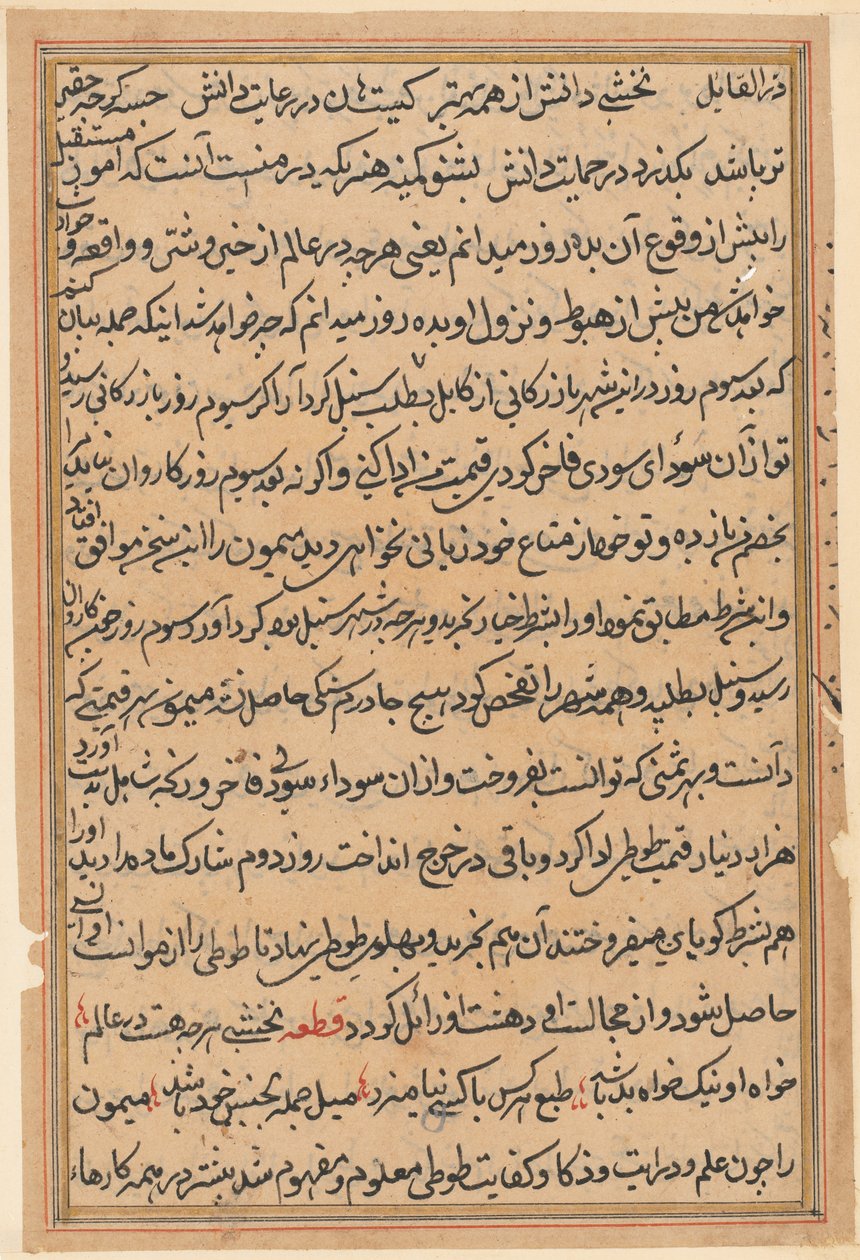 در القایل نخشبی دانش از همه بهتر کیست آن در رعایت دانش جسه کرچه حقیر
تر باشد بکذرد در حمایت دانش بشنو کمینه هنریکه در منست آنست که امور مستقبل
را پیش از وقوع آن بده روز میدانم یعنی هرچه در عالم از خیر و شر و واقعه و حوادث
خواهد شد من پیش از هبوط و نزول او بده روز میدانم که چه خواهد شد اینکه جمله بیان کنم
که بعد سیوم روز در این شهر بازرکانی از کابل بطلب سنبل کرد آرا کر سیوم روز بازرکانی رسید و
تو از آن سودای سودی فاخر کردی قیمت من ادا کنی و اکر نه بعد سیوم روز کاروان نیاید مرا
بخصم من باز ده و تو خود از متاع خود زیانی نخواهی دید میمون را این سخن موافق افتاد
و این شرط مطابق نمود او را بشرط خیار بخرید و هرچه در شهر سنبل بود کرد آورد سیوم روز چنین کاروان
رسید و سنبل بطلبید و همه شهر را تفحص کرد هیچ جا درم سنکی حاصل نشد میمون بهر قیمتی که
دانست و بهر ثمنی که توانست بفروخت و از آن سوداء سودی فاخر و ربحه شامل بدست آورد
هزار دینار قیمت طوطی ادا کرد و باقی در خرج انداخت روز دوم شارک ماده را دید او را
هم بشرط کویای میفروختند آن هم بخرید و بپهلوی طوطی نهاد تا طوطی را از موانست او انسی
حاصل شود و از مجالست او دهشت او زائل کردد قطعه نخشبی هرچه هست در عالم
خواه او نیک خواه بد باشد طبع هر کس با کسی نیامیزد میل جمله بجنس خود باشد میمون
را چون علم و درایت و ذکا و کفایت طوطی معلوم و مفهوم شد بیشتر در همه کارهاء